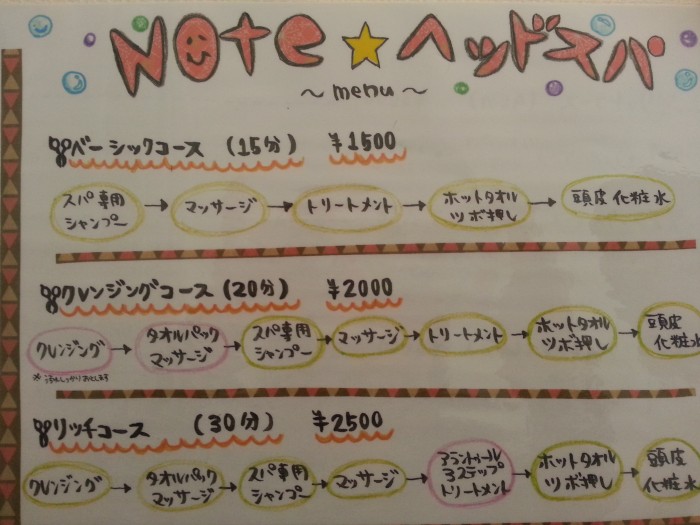 Note☆ヘッドスパ
～menu～
ベーシックコース (15分) ¥1500
スパ専用
シャンプー
→ マッサージ → トリートメント →
ホットタオル
ツボ押し
→ 頭皮化粧水
クレンジングコース (20分) ¥2000
クレンジング →
タオルパック
マッサージ
→
スパ専用
シャンプー
→ マッサージ → トリートメント →
ホットタオル
ツボ押し
→
頭皮
化粧水
リッチコース (30分) ¥2500
クレンジング →
タオルパック
マッサージ
→
スパ専用
シャンプー
→ マッサージ →
3ステップ
トリートメント
→
ホットタオル
ツボ押し
→
頭皮
化粧水